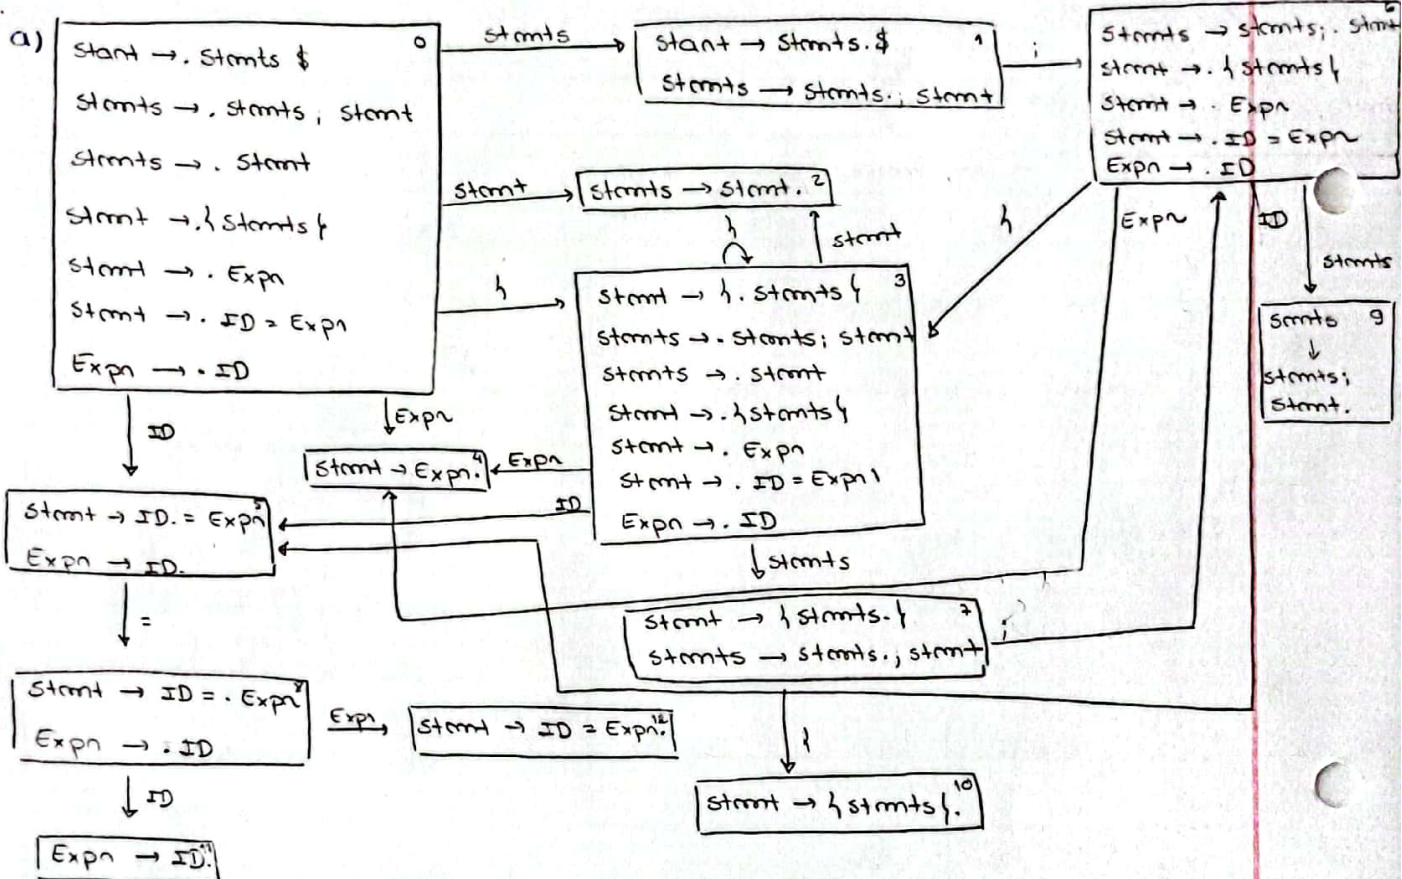 a)
0
Start → . Stmts $
Stmts → . Stmts ; Stmt
Stmts → . Stmt
Stmt → . { Stmts }
Stmt → . Expr
Stmt → . ID = Expr
Expr → . ID
Stmts
1
Start → Stmts . $
Stmts → Stmts . ; Stmt
;
6
Stmts → Stmts ; . Stmt
Stmt → . { Stmts }
Stmt → . Expr
Stmt → . ID = Expr
Expr → . ID
Stmt
Stmts → Stmt . 2
{
Stmt
{
Expr
ID
Stmts
{
3
Stmt → { . Stmts }
Stmts → . Stmts ; Stmt
Stmts → . Stmt
Stmt → . { Stmts }
Stmt → . Expr
Stmt → . ID = Expr
Expr → . ID
Smts 9
↓
Stmts ;
Stmt .
ID
Expr
Stmt → Expr . 4
Expr
ID
5
Stmt → ID . = Expr
Expr → ID .
Stmts
7
Stmt → { Stmts . }
Stmts → Stmts . ; Stmt
;
=
8
Stmt → ID = . Expr
Expr → . ID
Expr
Stmt → ID = Expr . 12
}
Stmt → { Stmts } . 10
ID
Expr → ID . 11